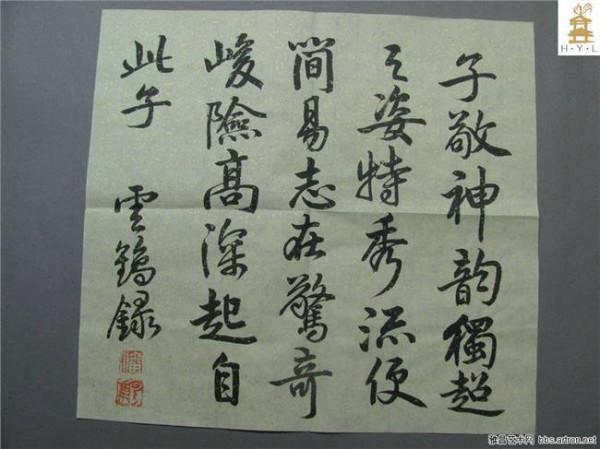 子敬神韵獨超
之姿特秀流便
簡易志在驚奇
峻險高深起自
此子
雲鶴録
H·Y·L
雅昌艺术网 bbs.artron.net